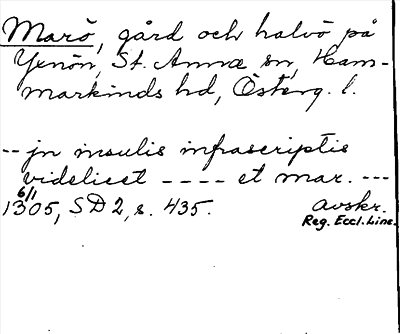 Marö, gård och halvö på
Yxnön, St. Annæ sn, Ham-
markinds hd, Österg. l.
-- jn insulis infrascriptis
videlicet ---- et mar. ---
6/1
1305, SD 2, s. 435. Avskr.
Reg. Eccl. Linc.